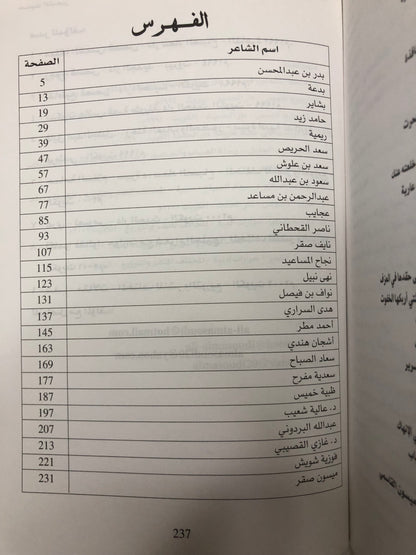 الفهرس
اسم الشاعر الصفحة
بدر بن عبدالمحسن 5
بدعة 13
بشاير 19
حامد زيد 29
ريمية 39
سعد الحريص 47
سعد بن علوش 57
سعود بن عبدالله 67
عبدالرحمن بن مساعد 77
عجايب 85
ناصر القحطاني 93
نايف صقر 107
نجاح المساعيد 115
نهى نبيل 123
نواف بن فيصل 131
هدى السراري 137
أحمد مطر 145
أشجان هندي 163
سعاد الصباح 169
سعدية مفرح 177
ظبية خميس 187
د. عالية شعيب 197
عبدالله البردوني 207
د. غازي القصيبي 213
فوزية شويش 221
ميسون صقر 231
237